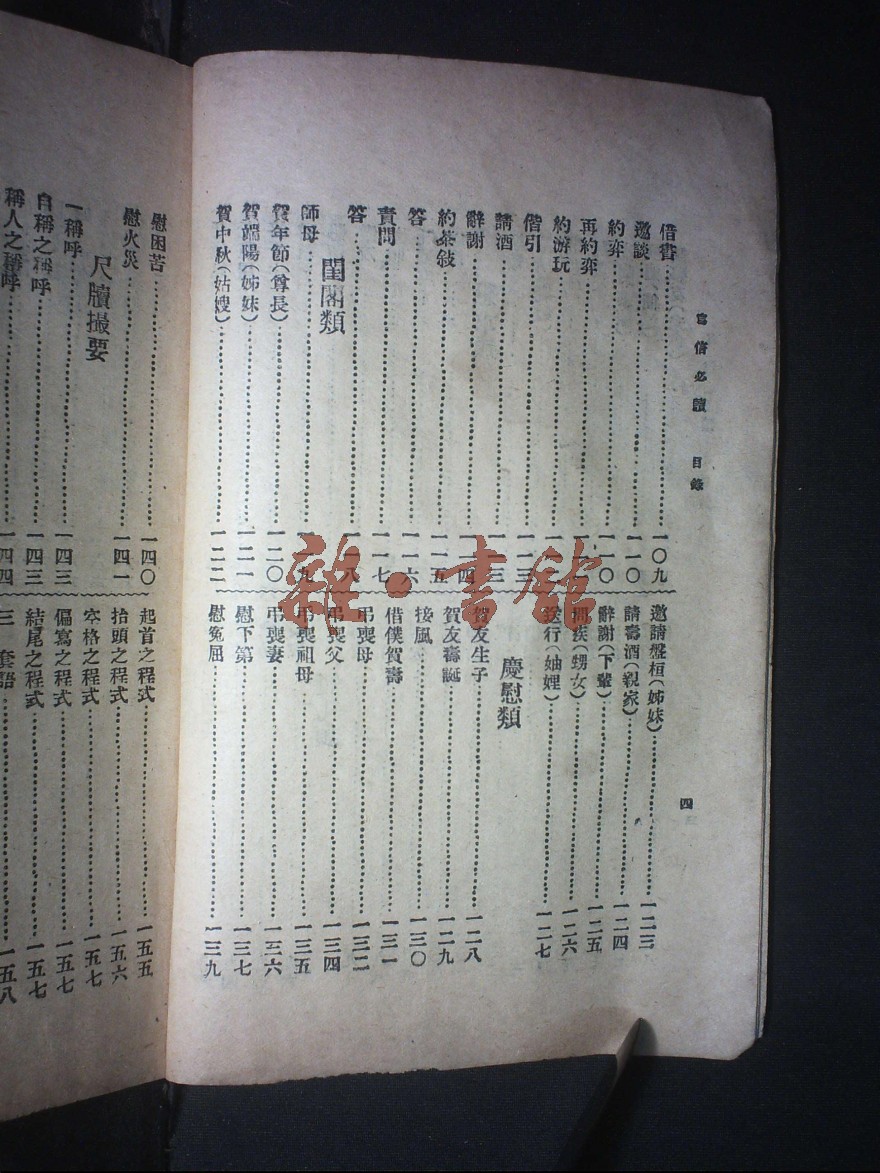 寫信必讀 目錄 四
借書……一〇九
邀談……一一〇
約弈……一一〇
再約弈……
約游玩……
偕引……一一三
請酒……一一三
辭謝……一一四
約茶敍……一一五
答……一一六
責問……一一七
答……一一八
閨閣類
師母……一一九
賀年節(尊長)……一二〇
賀端陽(姊妹)……一二一
賀中秋(姑嫂)……一二二
邀請盤桓(姊妹)……一二三
請壽酒(親家)……一二四
辭謝(下輩)……一二五
問疾(甥女)……一二六
送行(妯娌)……一二七
慶慰類
賀友生子……一二八
賀友壽誕……一二九
接風……一三〇
借僕賀壽……一三一
弔喪母……一三二
弔喪父……一三四
弔喪祖母……一三五
弔喪妻……一三六
慰下第……一三七
慰冤屈……一三九
慰困苦……一四〇
慰火災……一四一
尺牘撮要
一 稱呼……一四三
自稱之稱呼……一四三
稱人之稱呼……一四四
起首之程式……一五五
抬頭之程式……一五六
空格之程式……一五七
偏寫之程式……一五七
結尾之程式……一五七
三 套語……一五八
雜·書館